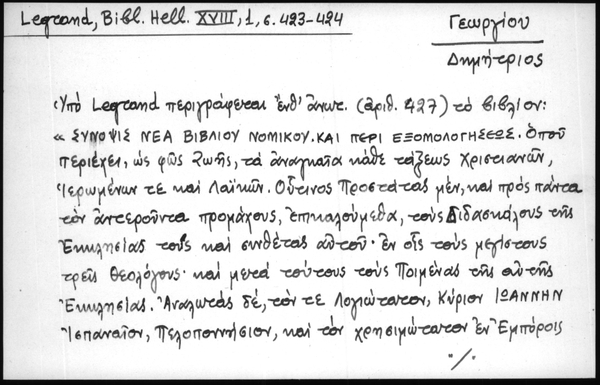 Legrand, Bibl. Hell. XVIII, 1, σ. 423-424
Γεωργίου
Δημήτριος
Ὑπό Legrand περιγράφεται ἔνθ' ἀνωτ. (ἀριθ. 427) τό βιβλίον:
« ΣΥΝΟΨΙΣ ΝΕΑ ΒΙΒΛΙΟΥ ΝΟΜΙΚΟΥ. ΚΑΙ ΠΕΡΙ ΕΞΟΜΟΛΟΓΗΣΕΩΣ. Ὁποῦ
περιέχει, ὡς φῶς ζωῆς, τά ἀναγκαῖα κάθε τάξεως Χριστιανῶν,
Ἱερωμένων τε καί Λαϊκῶν. Οὗτινος Προστάτας μέν, καί πρός πάντα
τόν ἀντεροῦντα προμάχους, ἐπικαλούμεθα, τούς Διδασκάλους τῆς
Ἐκκλησίας τούς καί συνθέτας αὐτοῦ· ἐν οἷς τούς μεγίστους
τρεῖς θεολόγους· καί μετά τούτους τούς Ποιμένας τῆς αὐτῆς
Ἐκκλησίας. Ἀναλωτάς δέ, τόν τε Λογιώτατον, Κύριον ΙΩΑΝΝΗΝ
Ἱσπαναῖον, Πελοποννήσιον, καί τόν χρησιμώτατον ἐν Ἐμπόροις
"/.